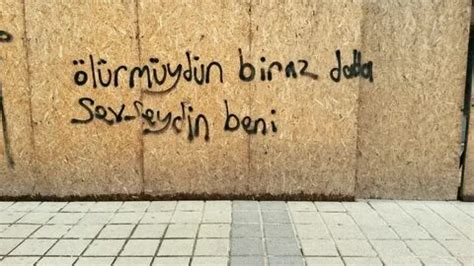 ölürmüydün biraz daha
Sev-seydin beni